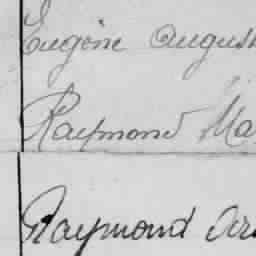 Eugène August
Raymond Ma
Raymond Ar